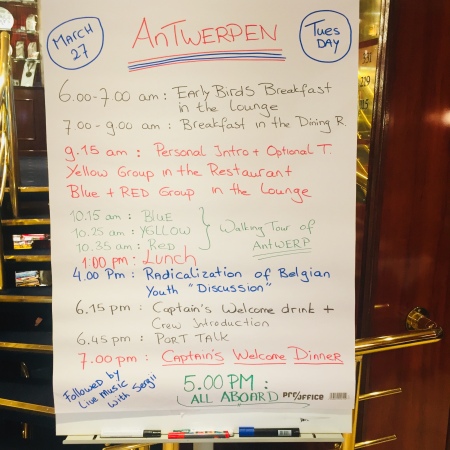 MARCH
27
ANTWERPEN
TUES
DAY
6.00-7.00 am : Early Birds Breakfast
in the Lounge
7.00-9.00 am : Breakfast in the Dining R.
9.15 am : Personal Intro + Optional T.
Yellow Group in the Restaurant
Blue + RED Group in the Lounge
10.15 am : BLUE
10.25 am : YELLOW
10.35 am : RED
Walking Tour of
ANTWERP
1:00 PM : Lunch
4.00 Pm : Radicalization of Belgian
Youth "Discussion"
6.15 pm : Captain's Welcome drink +
Crew Introduction
6.45 pm : PORT TALK
7.00 pm : Captain's Welcome Dinner
Followed by
Live Music
with Sergii
5.00 PM :
ALL ABOARD
pro/office